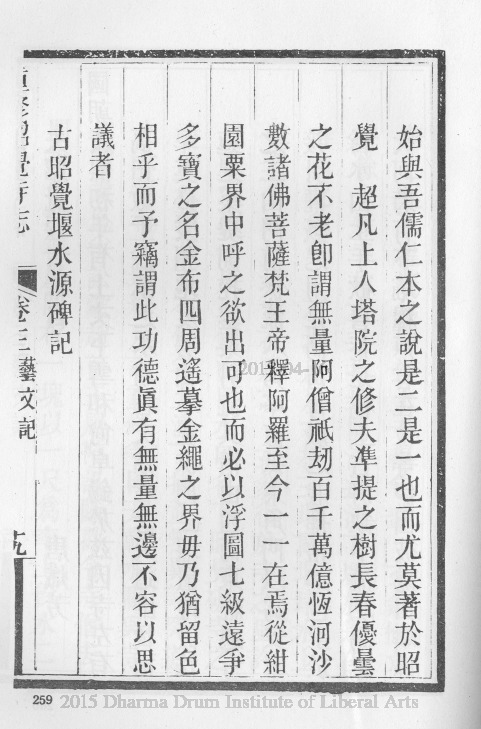 始與吾儒仁本之說是二是一也而尤莫著於昭
覺　超凡上人塔院之修夫準提之樹長春優曇
之花不老卽謂無量阿僧祇劫百千萬億恆河沙
數諸佛菩薩梵王帝釋阿羅至今一一在焉從紺
園粟界中呼之欲出可也而必以浮圖七級遠爭
多寶之名金布四周遙摹金繩之界毋乃猶留色
相乎而予竊謂此功德眞有無量無邊不容以思
議者
古昭覺堰水源碑記
重修昭覺寺志
卷三藝文記
十九
259 2015 Dharma Drum Institute of Liberal Arts